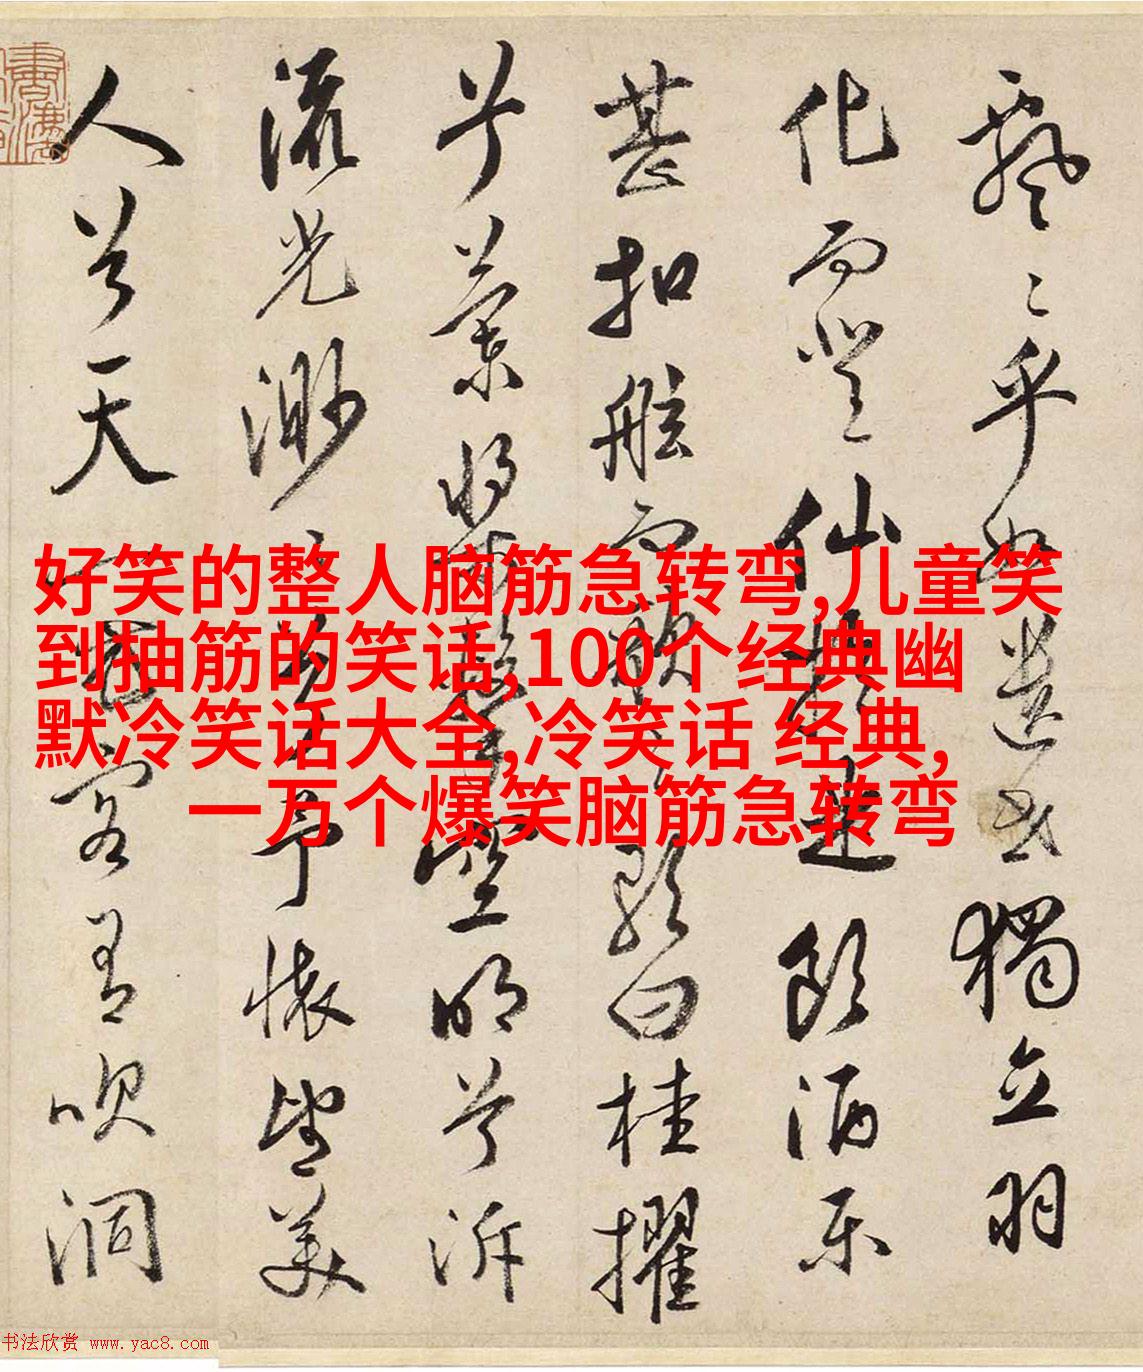 飄〻乎如遺世獨立羽
化而登仙於是飲酒樂
甚扣舷而歌之歌曰桂擢
兮蘭槳擊空明兮泝
流光渺〻兮予懷望美
人兮天一方客有吹洞
好笑的整人脑筋急转弯,儿童笑
到抽筋的笑话,100个经典幽
默冷笑话大全,冷笑话 经典,
一万个爆笑脑筋急转弯
书法欣赏 www.yac8.com